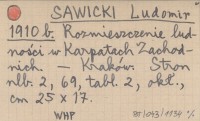 SAWICKI Ludomir
1910 b. Rozmieszczenie lud-
ności w Karpatach Zachod-
nich. — Kraków. Stron
nlb. 2, 69, tabl. 2, okł.,
cm 25 x 17.
WHP